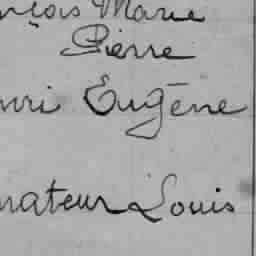 nçois Marie
Pierre
nri Eugène
mateur Louis